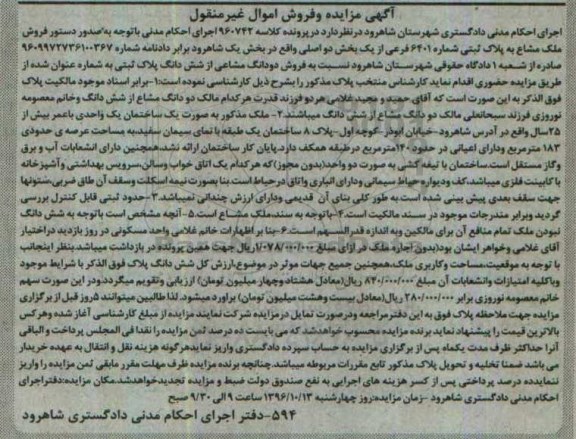 آگهی مزایده وفروش اموال غیرمنقول
اجرای احکام مدنی دادگستری شهرستان شاهرود درنظردارد درپرونده کلاسه ۹۶۰۷۴۲ اجرای احکام مدنی باتوجه به صدور دستور فروش
ملک مشاع به پلاک ثبتی شماره ۶۴۰۱ فرعی از یک بخش دو اصلی واقع در بخش یک شاهرود برابر دادنامه شماره ۹۶۰۹۹۷۲۷۳۶۱۰۰۳۶۷
صادره از شعبه ۱ دادگاه حقوقی شهرستان شاهرود نسبت به فروش دودانگ مشاعی از شش دانگ پلاک ثبتی به شماره عنوان شده از
طریق مزایده حضوری اقدام نماید کارشناس منتخب پلاک مذکور را بشرح ذیل کارشناسی نموده است:۱-برابر اسناد موجود مالکیت پلاک
فوق الذکر به این صورت است که آقای حمید و مجید غلامی هر دو فرزند قدرت هرکدام مالک دو دانگ مشاع از شش دانگ وخانم معصومه
نوروزی فرزند سبحانعلی مالک دو دانگ مشاع از شش دانگ میباشند.۲- ملک مذکور به صورت یک ساختمان یک واحدی باعمر بیش از
۲۵سال واقع در آدرس شاهرود-خیابان ابوذر-کوچه اول-پلاک ۸ ساختمان یک طبقه با نمای سیمان سفیدبه مساحت عرصه ی حدودی
۱۸۳ مترمربع ودارای اعیانی در حدود۱۴۰مترمربع درطبقه همکف دارد.پایان کار ساختمان ارائه نشد،همچنین دارای انشعابات آب و برق
وگاز مستقل است.ساختمان با تیغه کشی به صورت دو واحد(بدون مجوز)که هرکدام یک اتاق خواب وسالن،سرویس بهداشتی وآشپزخانه
با کابینت فلزی میباشد،کف ودیواره حیاط سیمانی ودارای انباری واتاق درحیاط است.بنا بصورت نیمه اسکلت وسقف آن طاق ضربی،ستونها
جهت سقف بعدی پیش بینی شده است به طور کلی بنای آن قدیمی ودارای ارزش چندانی نمیباشد.۳-حدود ثبتی قابل کنترل بررسی
گردید وبرابر مندرجات موجود در سند مالکیت است.۴-باتوجه به سند،ملک مشاع است.۵-آنچه مشخص است باتوجه به شش دانگ
نبودن ملک تمام منافع آن برای مالکین وبه اندازه قدرالسهم است.۶-بنا بر اظهارات خانم غلامی واحد مسکونی در روز بازدید دراختیار
آقای غلامی وخواهر ایشان بود(بدون اجاره ملک در ازای مبلغ ۷۸/۰۰۰/۰۰۰ریال جهت همین پرونده در بازداشت میباشد.بنظر اینجانب
با توجه به موقعیت،مساحت وکاربری ملک،همچنین جمیع جهات موثر در موضوع،ارزش کل شش دانگ پلاک فوق الذکر با شرایط موجود
وباکلیه امتیازات وانشعابات آن مبلغ ۸۴۰/۰۰۰/۰۰۰ ریال(معادل هشتاد وچهار میلیون تومان) ارزیابی وتقویم میگردد.ودر این صورت سهم
خانم معصومه نوروزی برابر ۲۸۰/۰۰۰/۰۰۰ریال(معادل بیست وهشت میلیون تومان) برآورد میشود. لذا طالبین میتوانند ۵روز قبل از برگزاری
مزایده جهت ملاحظه پلاک فوق به این دفترمراجعه ودرصورت تمایل درمزایده شرکت نمایند مزایده از مبلغ کارشناسی آغاز شده وهرکس
بالاترین قیمت را پیشنهاد نماید برنده مزایده محسوب خواهدشد که می بایست ده درصد ثمن مزایده را نقدا فی المجلس پرداخت و الباقی
آنرا حداکثر ظرف مدت یکماه پس از برگزاری مزایده به حساب سپرده دادگستری واریز نمایدهرگونه هزینه نقل و انتقال به عهده خریدار
می باشد ضمنا تخلیه و تحویل پلاک مذکور تابع مقررات مربوطه میباشد.چنانچه برنده مزایده ظرف مهلت مقرر مابقی ثمن مزایده را واریز
ننمایدده درصد پرداختی پس از کسر هزینه های اجرایی به نفع صندوق دولت ضبط و مزایده تجدیدخواهدشد.مکان مزایده:دفتراجرای
احکام مدنی دادگستری شاهرود -زمان مزایده:روز چهارشنبه ۱۳۹۶/۱۰/۱۳ ساعت ۹ الی ۹/۳۰ صبح
۵۹۴-دفتر اجرای احکام مدنی دادگستری شاهرود